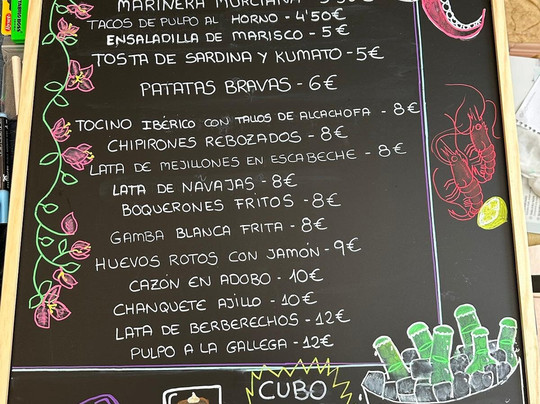 MARINERA MURCIANA
TACOS DE PULPO AL HORNO - 4'50€
ENSALADILLA DE MARISCO - 5€
TOSTA DE SARDINA Y KUMATO - 5€
PATATAS BRAVAS - 6€
TOCINO IBÉRICO CON TALLOS DE ALCACHOFA - 8€
CHIPIRONES REBOZADOS - 8€
LATA DE MEJILLONES EN ESCABECHE - 8€
LATA DE NAVAJAS - 8€
BOQUERONES FRITOS - 8€
GAMBA BLANCA FRITA - 8€
HUEVOS ROTOS CON JAMÓN - 9€
CAZÓN EN ADOBO - 10€
CHANQUETE AJILLO - 10€
LATA DE BERBERECHOS - 12€
PULPO A LA GALLEGA - 12€
CUBO